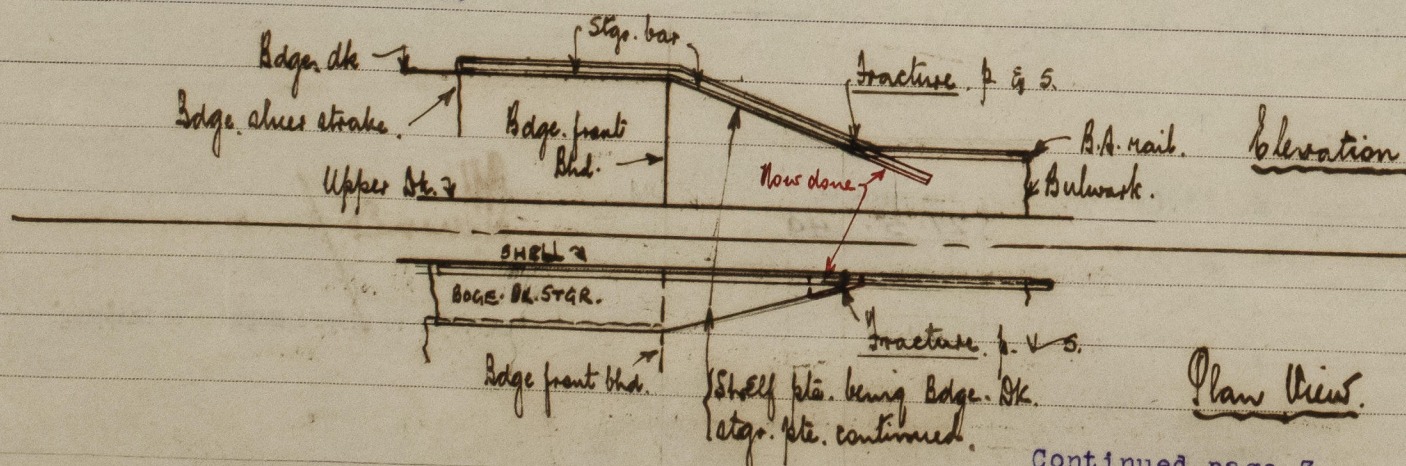 Stgr. bar
Bdge. dk
Fracture. p & s.
Bdge. sheer strake.
Bdge. front
Bhd.
B.A. rail.
Elevation
Now done
Upper Dk.
Bulwark.
SHELL
BDGE. DK. STGR.
Fracture. p. & s.
Bdge front bhd.
Shelf pte. being Bdge. Dk.
stgr. pte. continued.
Plan View.
Continued page 3